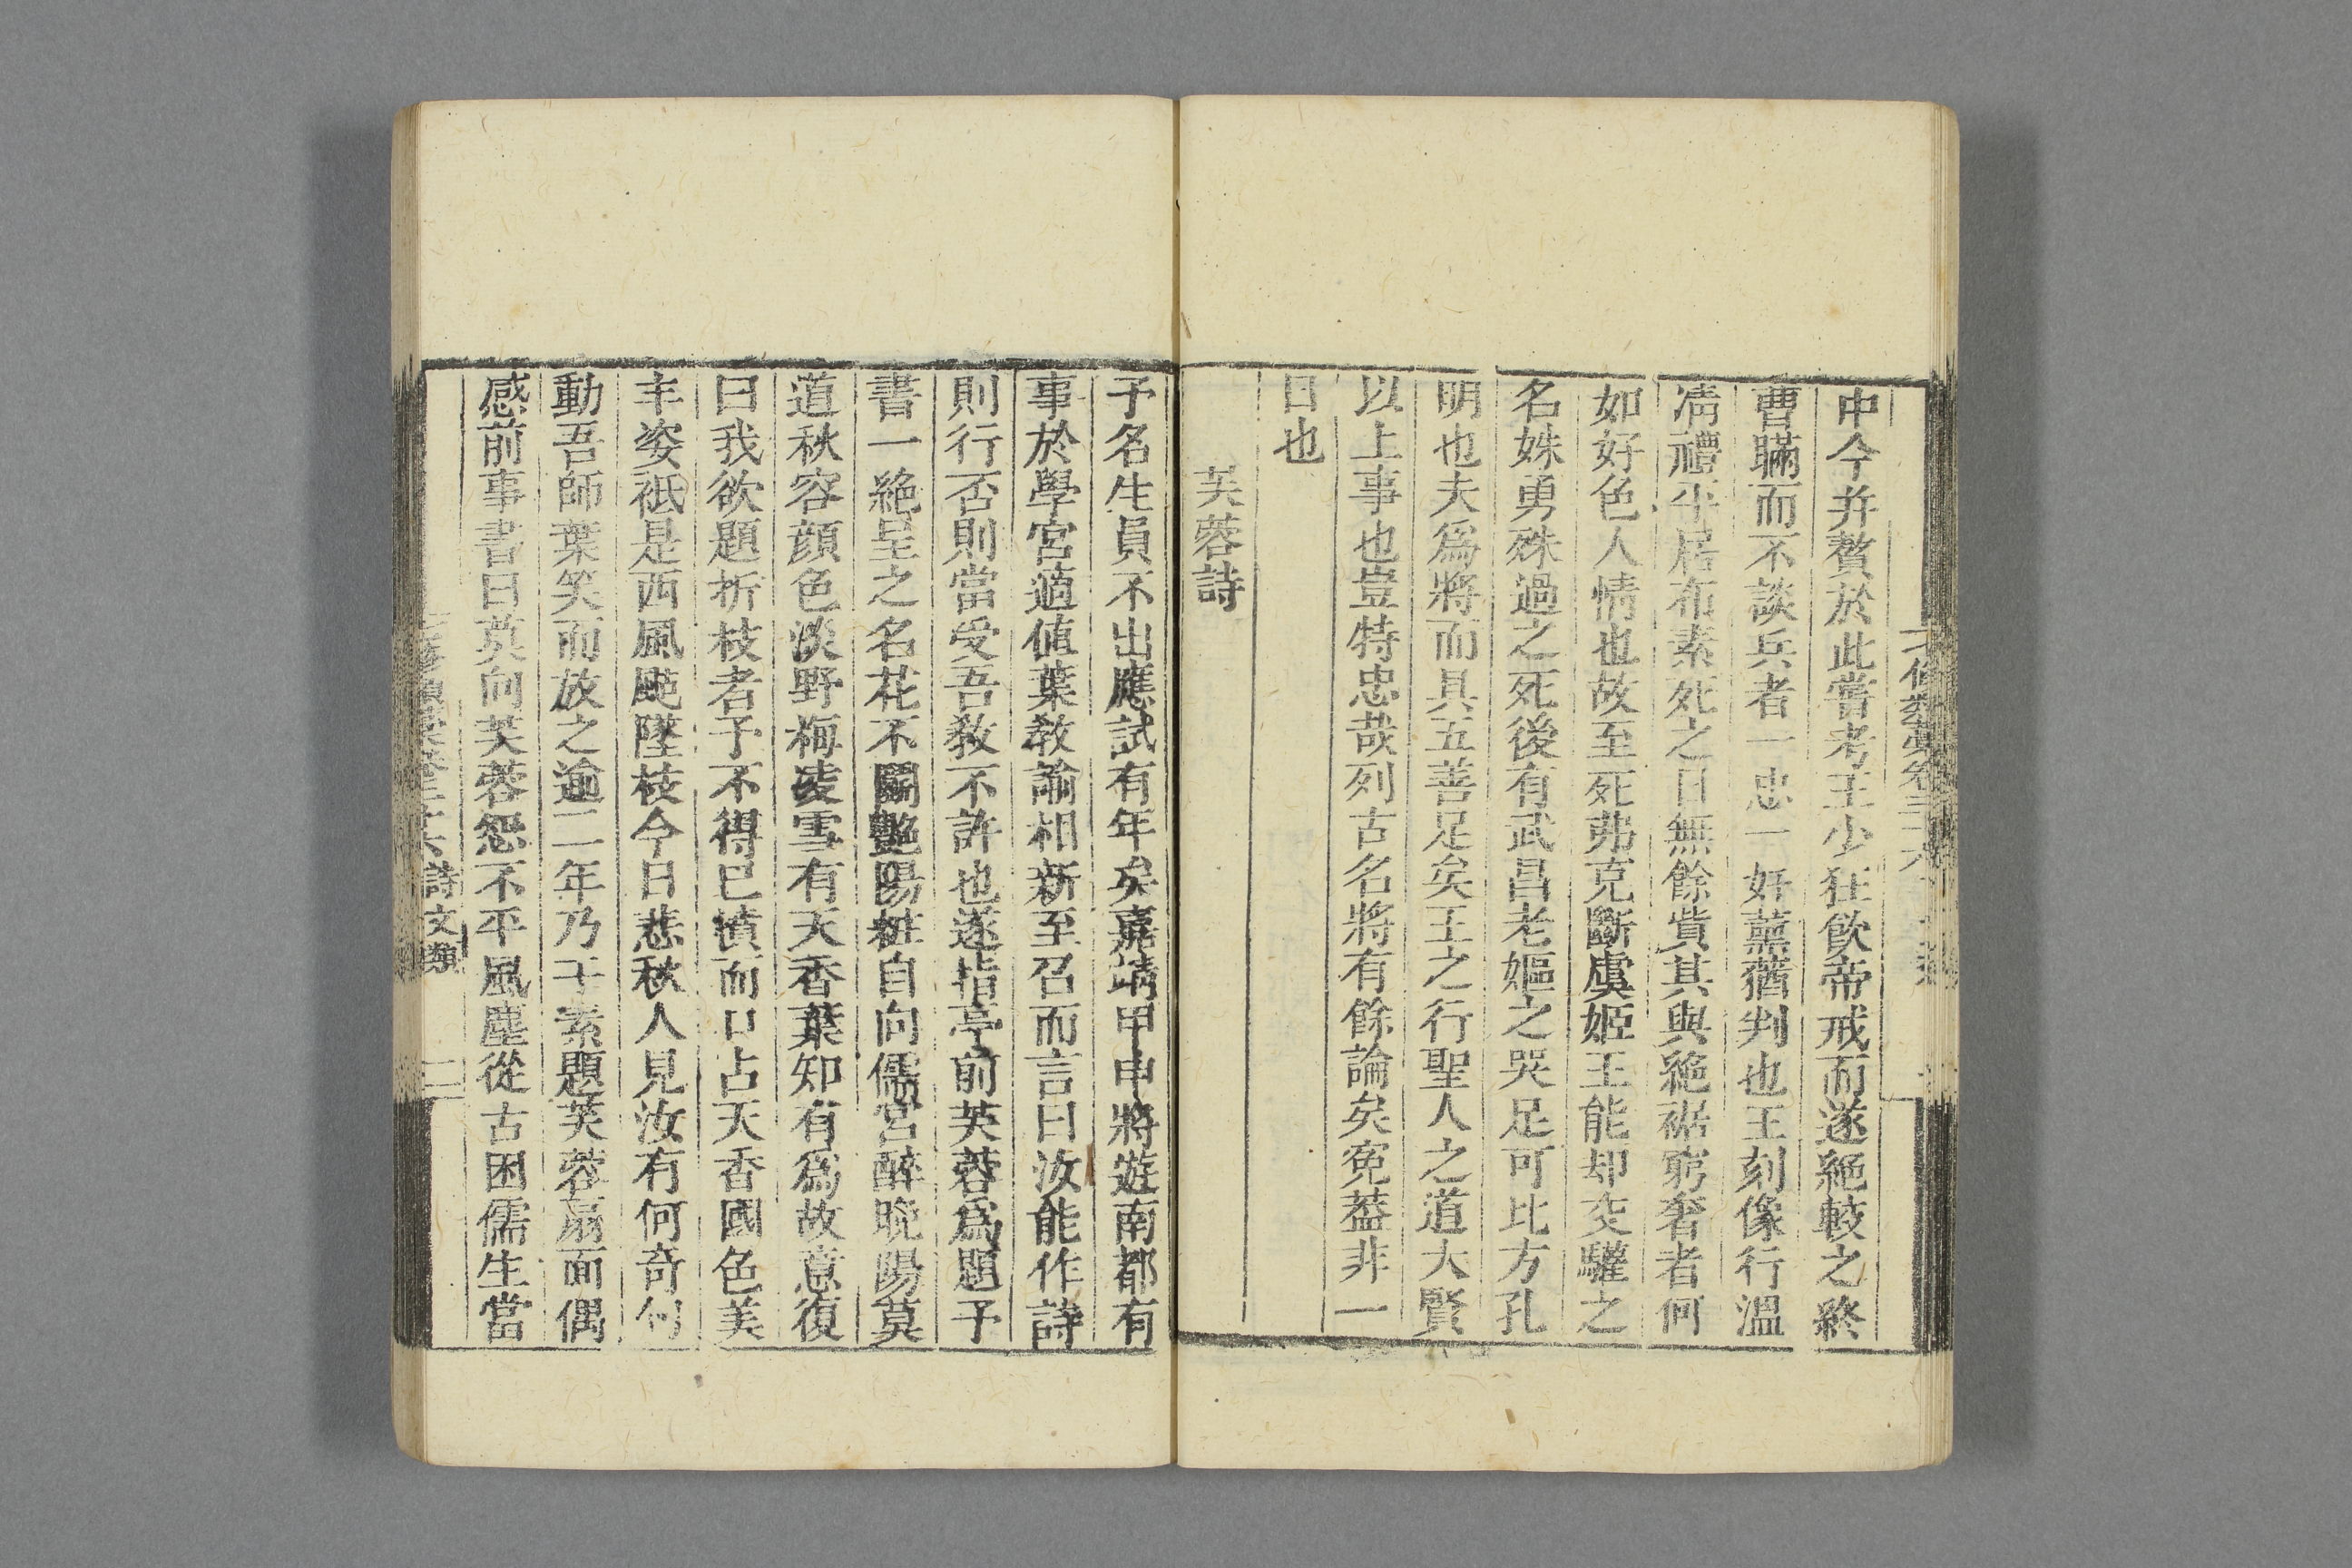 中今并贅於此嘗考王少狂飲帝戒而遂絕較之終
曹瞞而不談兵者一忠一奸薰蕕判也王刻像行溫
凊禮平居布素死之日無餘貲其與絕裾窮奢者何
如好色人情也故至死弗克斷虞姬王能却女驩之
名姝勇殊過之死後有武昌老嫗之哭足可比方孔
明也夫爲將而具五善足矣王之行聖人之道大賢
以上事也豈特忠哉列古名將有餘論矣寃葢非一
日也
芙蓉詩
予名生員不出應試有年矣嘉靖甲申將遊南都有
事於學宮適値葉教諭相新至召而言曰汝能作詩
則行否則當受吾教不許也遂指亭前芙蓉爲題予
書一絕呈之名花不鬭艷陽粧自向儒宮醉晩陽莫
道秋容顔色淡野梅凌雪有天香葉知有爲故意復
曰我欲題折枝者予不得已憤而口占天香國色美
丰姿祗是西風颭墜枝今日悲秋人見汝有何奇何
動吾師葉笑而放之逾二年乃子素題芙蓉扇面偶
感前事書曰莫向芙蓉怨不平風塵從古困儒生當
詩文類
二